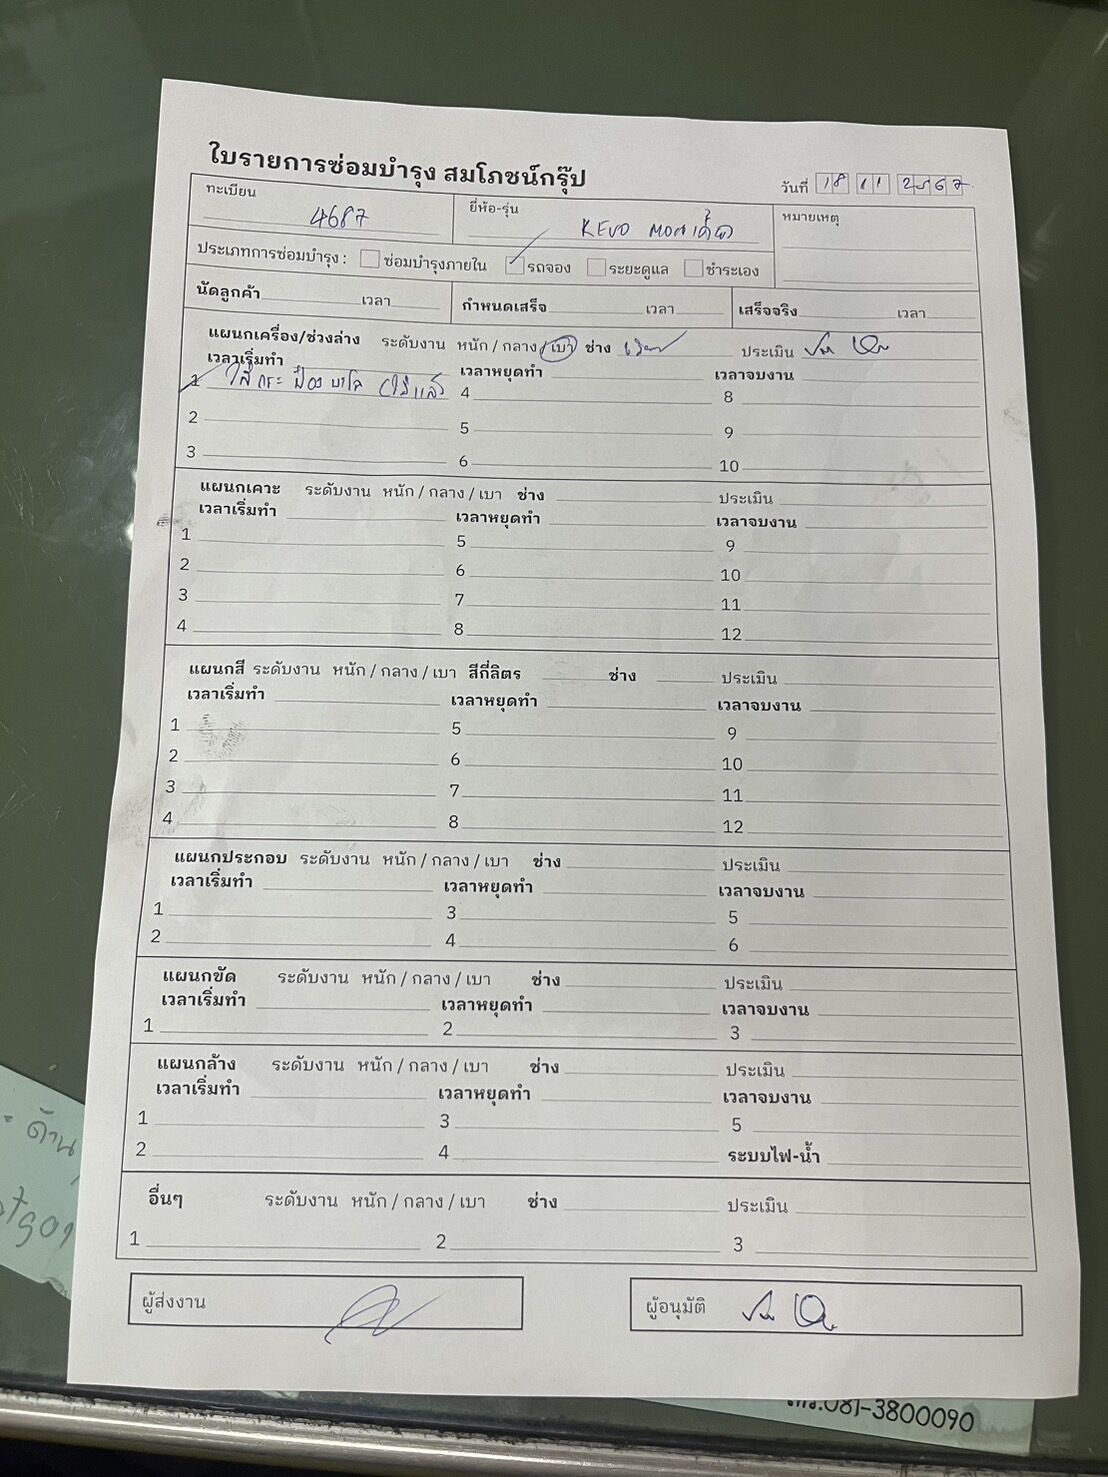 ใบรายการซ่อมบำรุง สมโภชน์กรุ๊ป
วันที่ 18 11 2567
ทะเบียน 4687
ยี่ห้อ-รุ่น REVO
หมายเหตุ
ประเภทการซ่อมบำรุง : ซ่อมบำรุงภายใน รถจอง ระยะดูแล ชำระเอง
นัดลูกค้า เวลา กำหนดเสร็จ เวลา เสร็จจริง เวลา
แผนกเครื่อง/ช่วงล่าง ระดับงาน หนัก / กลาง / เบา ช่าง ประเมิน
เวลาเริ่มทำ เวลาหยุดทำ เวลาจบงาน
1 ใส่กระป๋อง (ใส่แล้ว 4 8
2 5 9
3 6 10
แผนกเคาะ ระดับงาน หนัก / กลาง / เบา ช่าง ประเมิน
เวลาเริ่มทำ เวลาหยุดทำ เวลาจบงาน
1 5 9
2 6 10
3 7 11
4 8 12
แผนกสี ระดับงาน หนัก / กลาง / เบา สีกี่ลิตร ช่าง ประเมิน
เวลาเริ่มทำ เวลาหยุดทำ เวลาจบงาน
1 5 9
2 6 10
3 7 11
4 8 12
แผนกประกอบ ระดับงาน หนัก / กลาง / เบา ช่าง ประเมิน
เวลาเริ่มทำ เวลาหยุดทำ เวลาจบงาน
1 3 5
2 4 6
แผนกขัด ระดับงาน หนัก / กลาง / เบา ช่าง ประเมิน
เวลาเริ่มทำ เวลาหยุดทำ เวลาจบงาน
1 2 3
แผนกล้าง ระดับงาน หนัก / กลาง / เบา ช่าง ประเมิน
เวลาเริ่มทำ เวลาหยุดทำ เวลาจบงาน
1 3 5
2 4 ระบบไฟ-น้ำ
อื่นๆ ระดับงาน หนัก / กลาง / เบา ช่าง ประเมิน
1 2 3
ผู้ส่งงาน
ผู้อนุมัติ
ด้าน
โทร.081-3800090